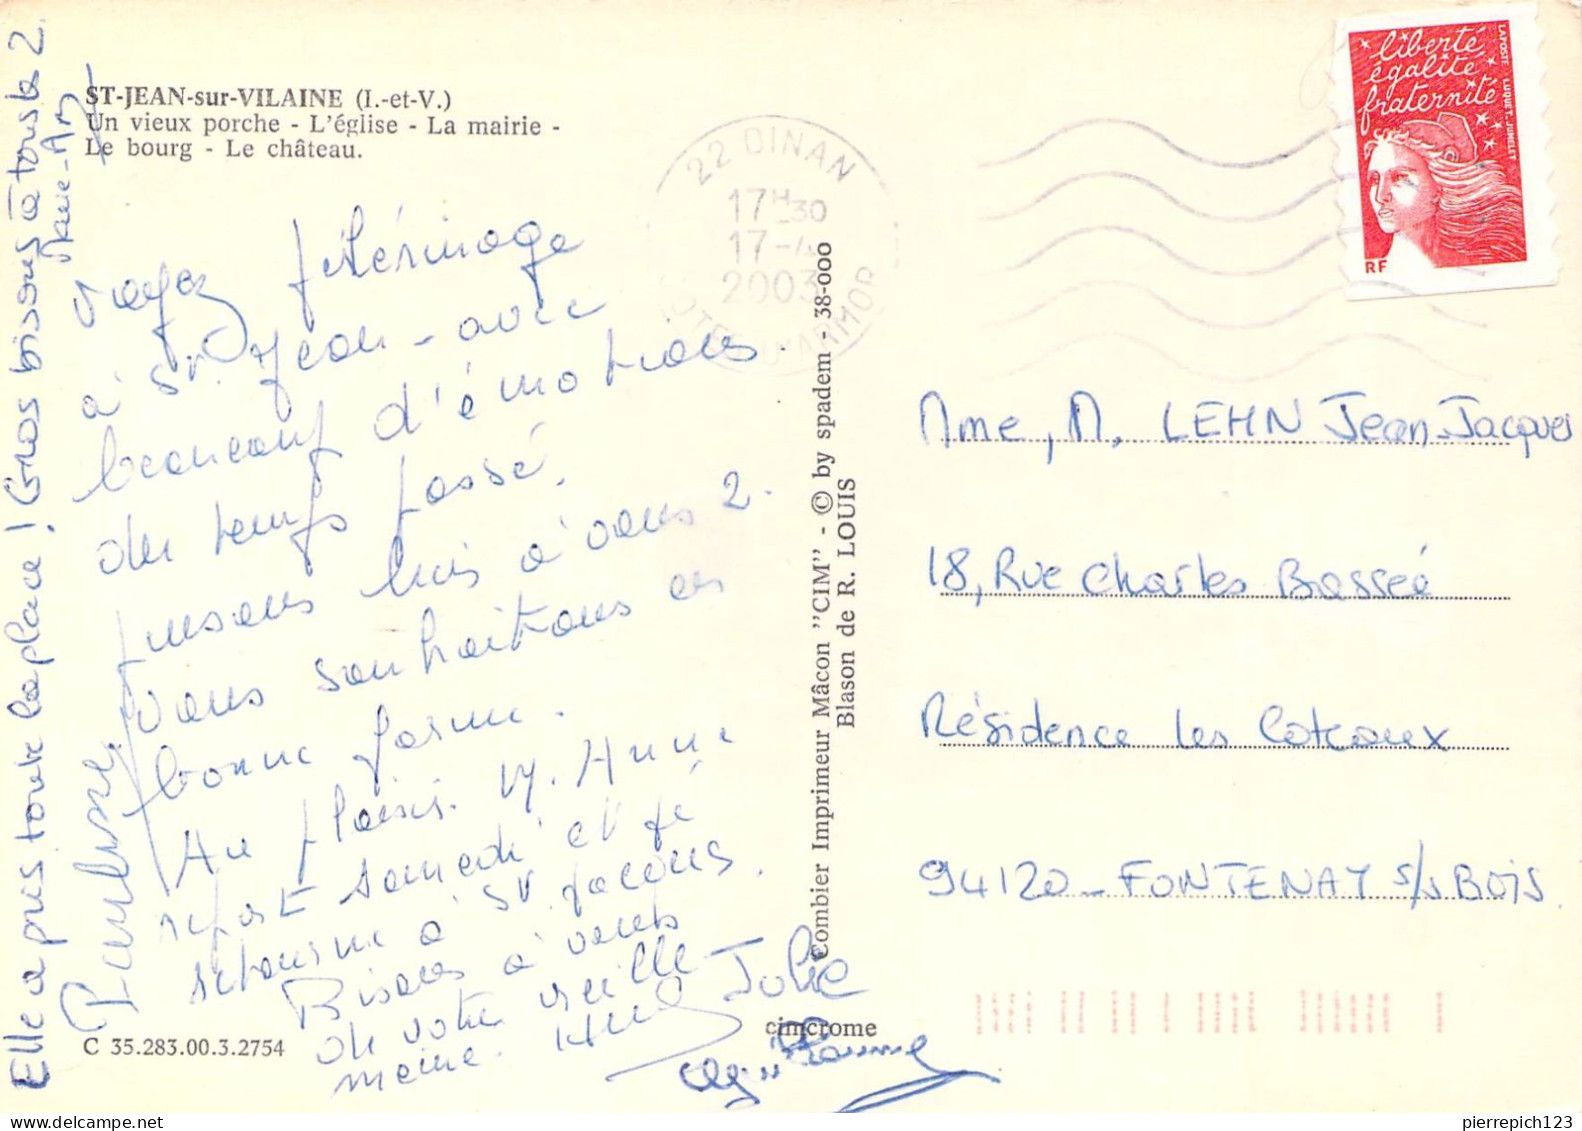 ST-JEAN-sur-VILAINE (I.-et-V.)
Un vieux porche - L'église - La mairie -
Le bourg - Le château.
pélérinage
à St. Jean - avec
beaucoup d'émotions.
du temps passé.
pensons bien à vous 2.
vous souhaitons en
bonne forme.
Au plaisir. M. Anne
repart samedi et je
retourne à St Jacques.
Bisous à vous
de votre vieille
meine.
Elle a pris toute la place ! Gros bisous à tous les 2.
Julie
C 35.283.00.3.2754
cimcrome
Combier Imprimeur Mâcon "CIM" - © by spadem - 38-000
Blason de R. LOUIS
22 DINAN
17H30
17-4
2003
COTES D'ARMOR
liberté
égalité
fraternité
RF
LAPOSTE LUQUET.JUMELET
Mme, M. LEHN Jean-Jacques
18, Rue Charles Basseé
Résidence les Coteaux
94120 - FONTENAY s/s BOIS
pierrepich123